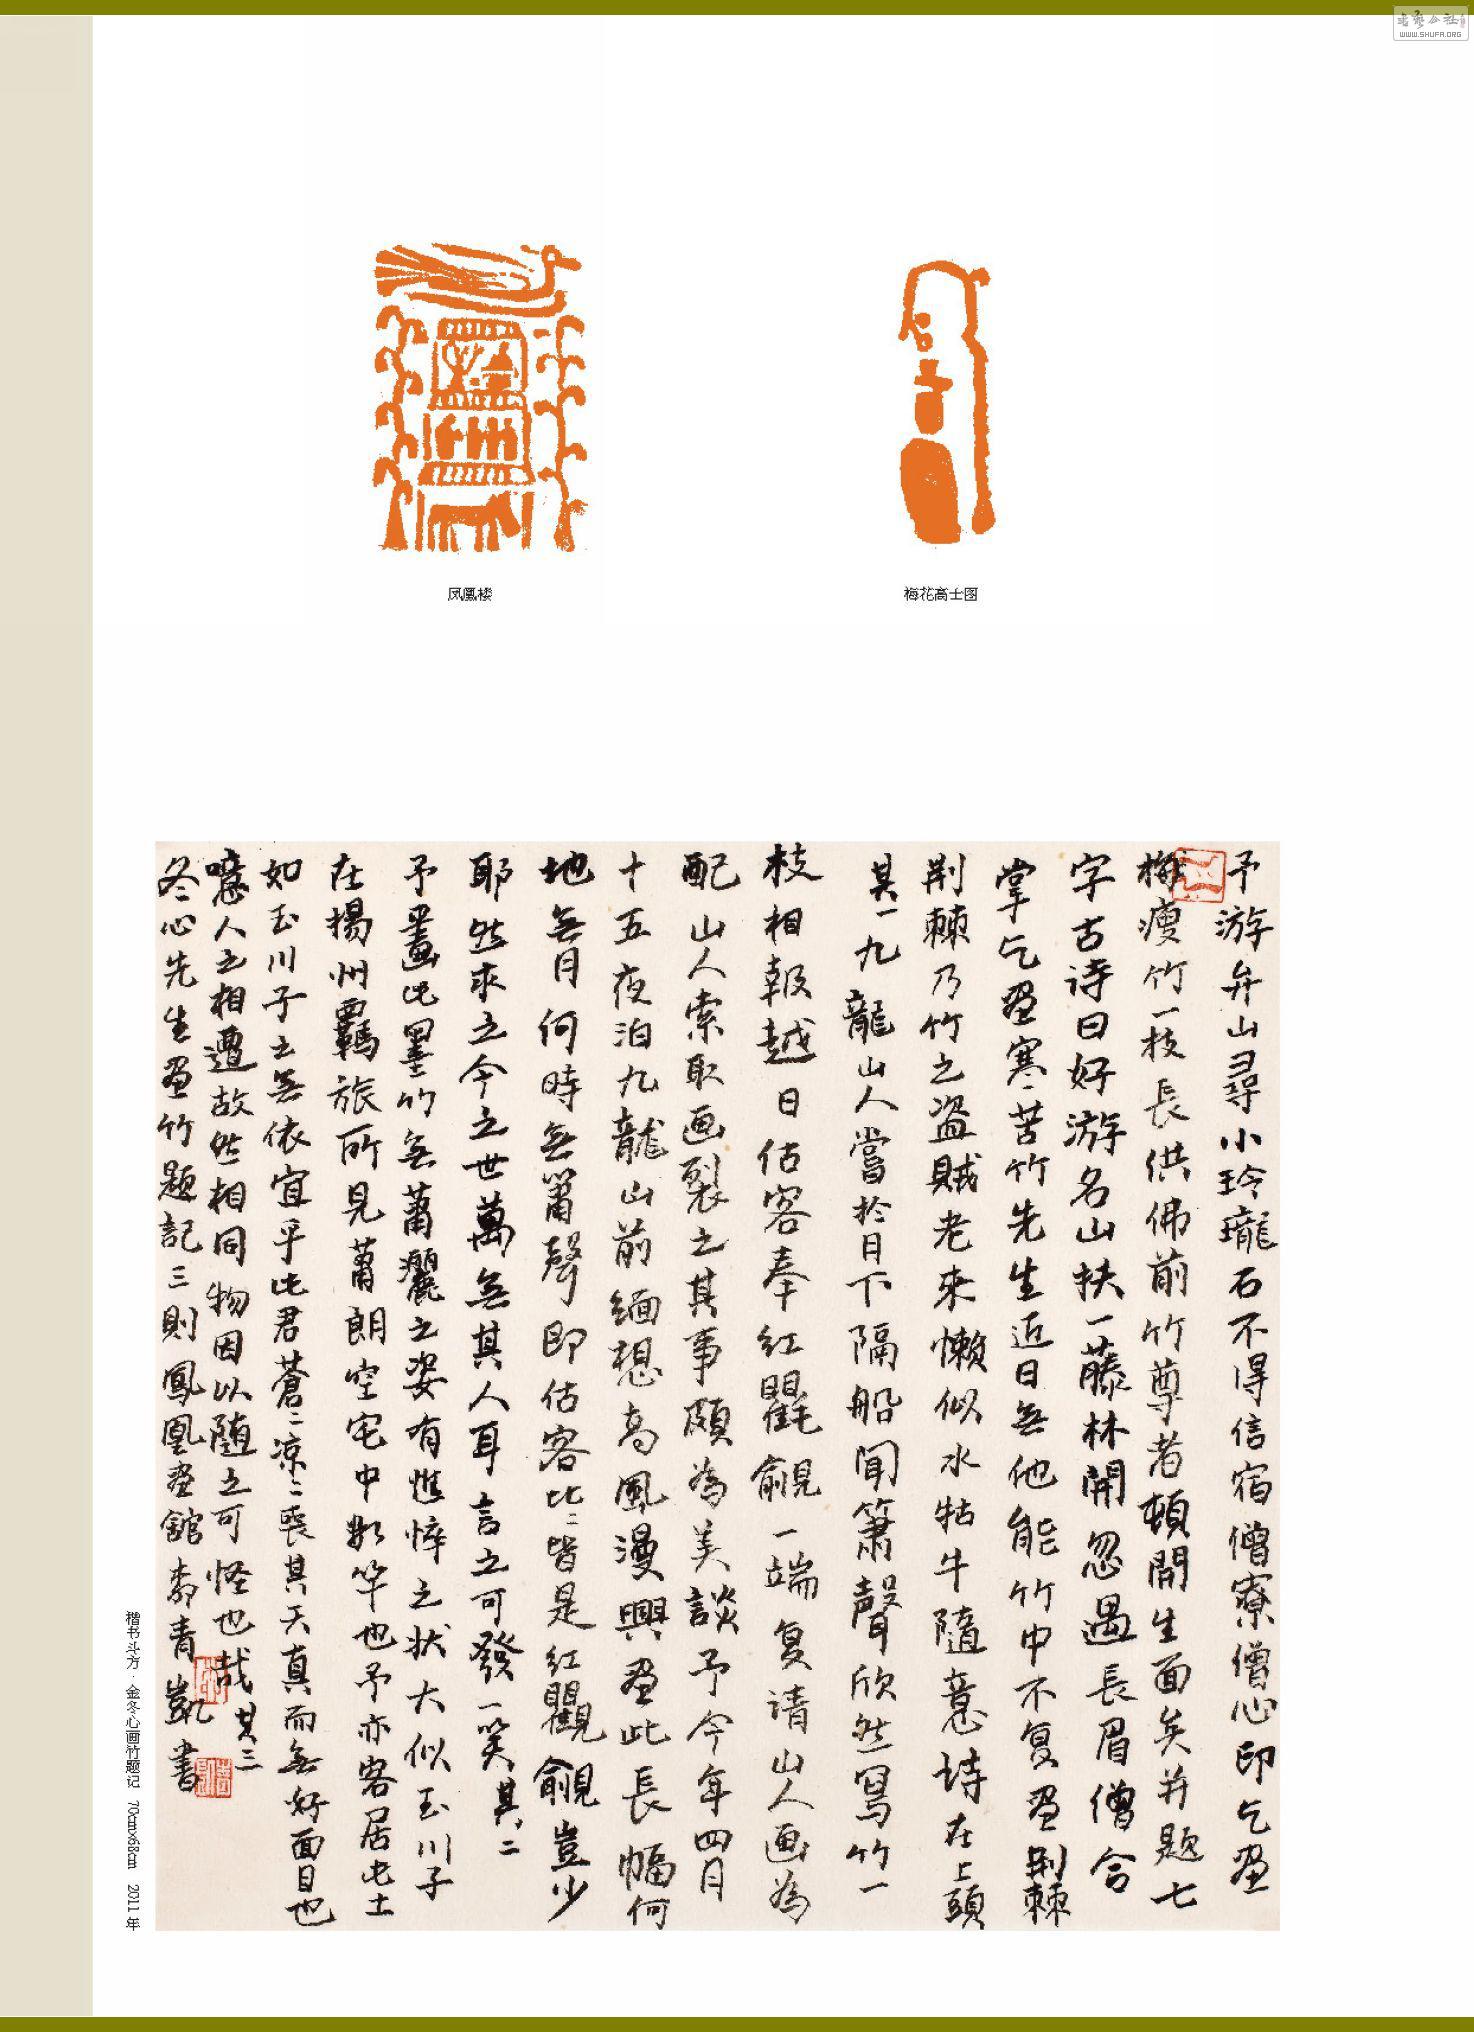 书艺公社
WWW.SHUFA.ORG
凤凰楼
梅花高士图
予游弁山尋小玲瓏石不得信宿僧寮僧心印乞畫
梅瘦竹一枝長供佛前竹尊者頓開生面矣并题七
字古诗曰好游名山扶一藤林開忽遇長眉僧合
掌乞畫寒〻苦竹先生近日無他能竹中不复畫荆棘
荆棘乃竹之盗賊老来懒似水牯牛隨意詩在上頭
其一九龍山人嘗於月下隔船聞簫聲欣然寫竹一
枝相報越日估客奉红氍毹一端复请山人画為
配山人索取画裂之其事頗為美談予今年四月
十五夜泊九龍山前緬想高風漫興畫此長幅何
地無月何時無簫聲即估客比〻皆是红氍毹豈少
耶然求之今之世萬無其人耳言之可發一笑其二
予畫此墨竹無蕭灑之姿有憔悴之状大似玉川子
在揚州羈旅所見蕭郎空宅中數竿也予亦客居此土
如玉川子之無依宜乎此君蒼〻凉〻喪其天真而無好面目也
噫人之相遭故然相同物因以随之可怪也哉其三
冬心先生畫竹题記三則鳳凰畫館 青凱書
楷书斗方·金冬心画竹题记 70cm×68cm 2011年